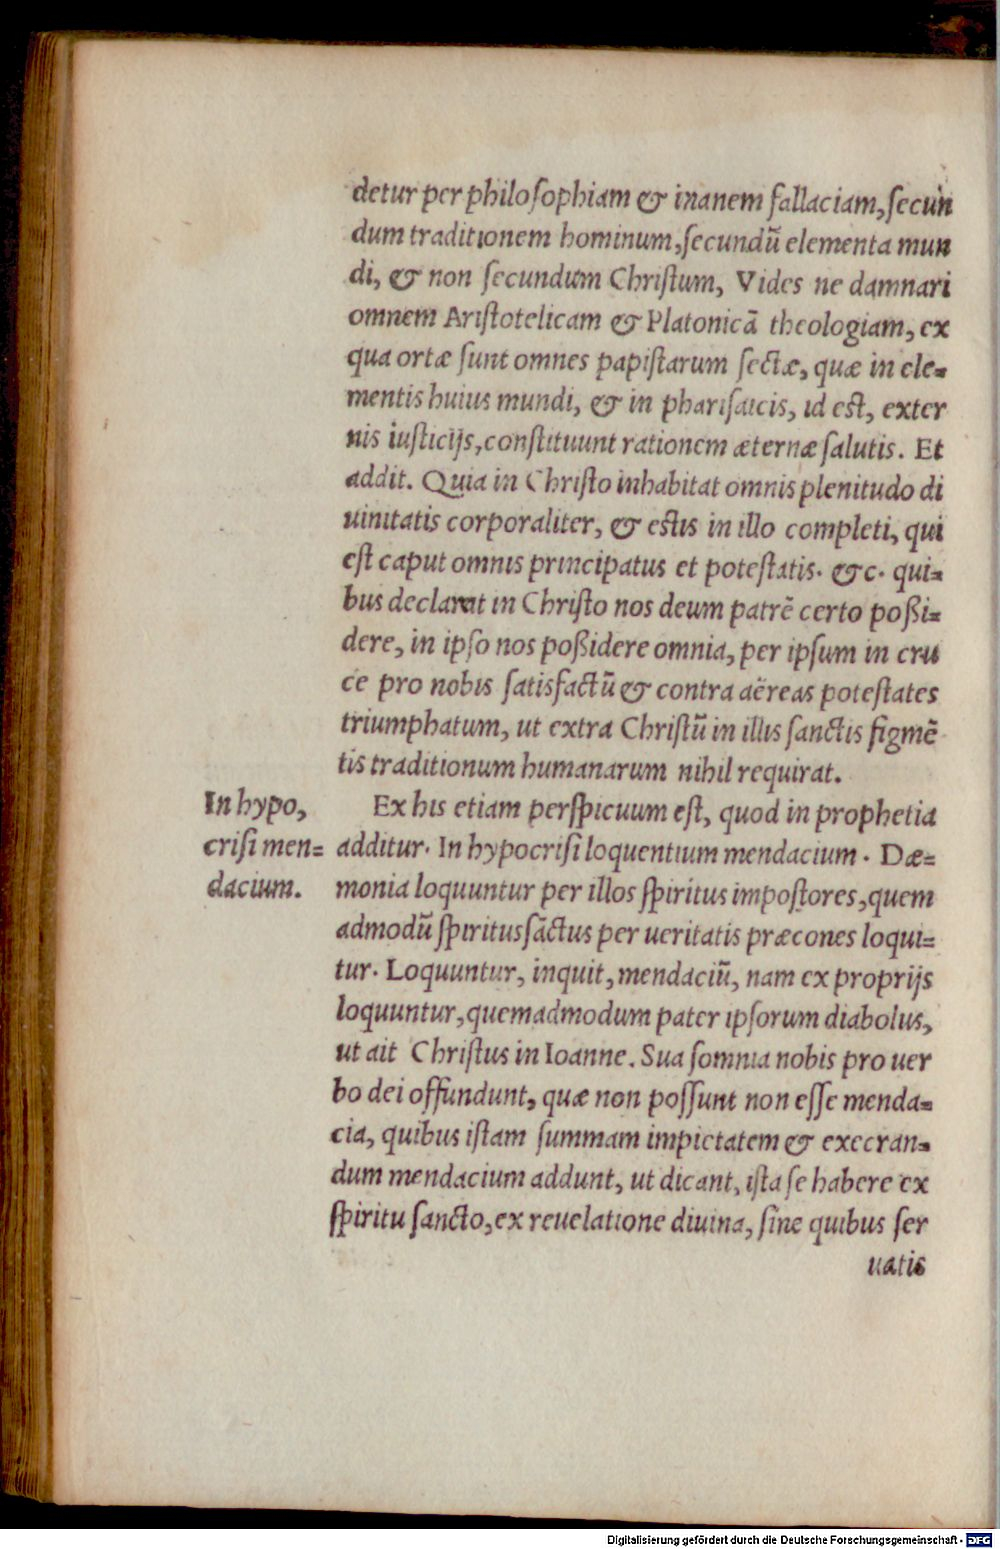 detur per philosophiam & inanem fallaciam, secun
dum traditionem hominum, secundũ elementa mun
di, & non secundum Christum, Vides ne damnari
omnem Aristotelicam & Platonicã theologiam, ex
qua ortæ sunt omnes papistarum sectæ, quæ in ele=
mentis huius mundi, & in pharisaicis, id est, exter
nis iusticijs, constituunt rationem æternæ salutis. Et
addit. Quia in Christo inhabitat omnis plenitudo di
uinitatis corporaliter, & estis in illo completi, qui
est caput omnis principatus et potestatis. &c. qui=
bus declarat in Christo nos deum patrẽ certo poßi=
dere, in ipso nos poßidere omnia, per ipsum in cru
ce pro nobis satisfactũ & contra aëreas potestates
triumphatum, ut extra Christũ in illis sanctis figmẽ
tis traditionum humanarum nihil requirat.
In hypo,
crisi men=
dacium.
Ex his etiam perspicuum est, quod in prophetia
additur. In hypocrisi loquentium mendacium. Dæ=
monia loquuntur per illos spiritus impostores, quem
admodũ spiritus sãctus per ueritatis præcones loqui=
tur. Loquuntur, inquit, mendaciũ, nam ex proprijs
loquuntur, quemadmodum pater ipsorum diabolus,
ut ait Christus in Ioanne. Sua somnia nobis pro uer
bo dei offundunt, quæ non possunt non esse menda=
cia, quibus istam summam impietatem & execran=
dum mendacium addunt, ut dicant, ista se habere ex
spiritu sancto, ex reuelatione diuina, sine quibus ser
uatis
Digitalisierung gefördert durch die Deutsche Forschungsgemeinschaft - DFG